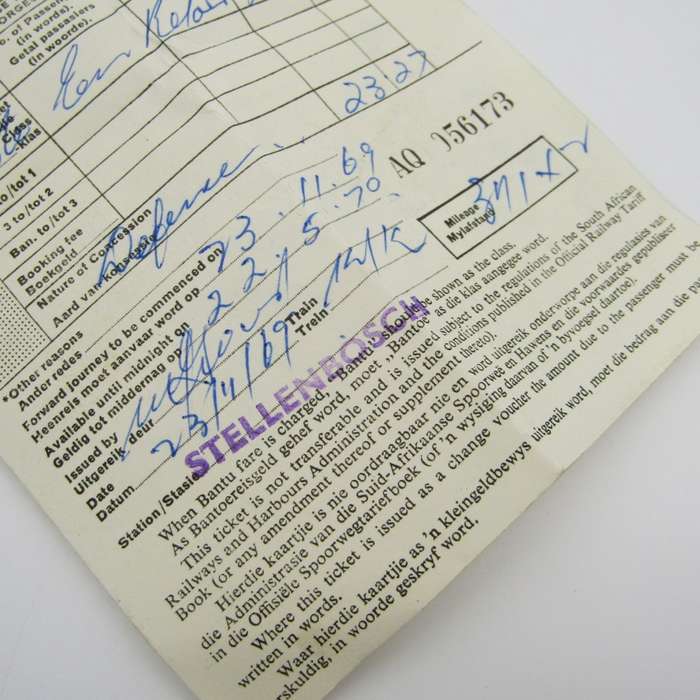 o. of Passen
(in words).
Getal passasiers
(in woorde).
Een Retou
Class
klas
23·27
to/tot 1
3 to/tot 2
Ban. to/tot 3
Booking fee
Boekgeld
Nature of Concession
Aard van konsessie
Defense
AQ 056173
Mileage
Mylafstand
*Other reasons
Ander redes
Forward journey to be commenced on
Heenreis moet aanvaar word op
23.11.69
Available until midnight on
Geldig tot middernag op
22.5.70
Issued by
Uitgereik deur
Train
Trein
Date
Datum
23/11/69
Station/Stasie
STELLENBOSCH
When Bantu fare is charged, "Bantu" should be shown as the class.
As Bantoereisgeld gehef word, moet „Bantoe" as die klas aangegee word.
This ticket is not transferable and is issued subject to the regulations of the South African
Railways and Harbours Administration and the conditions published in the Official Railway Tariff
Book (or any amendment thereof or supplement thereto).
Hierdie kaartjie is nie oordraagbaar nie en word uitgereik onderworpe aan die regulasies van
die Administrasie van die Suid-Afrikaanse Spoorweë en Hawens en die voorwaardes gepubliseer
in die Offisiële Spoorwegtariefboek (of 'n wysiging daarvan of 'n byvoegsel daartoe).
Where this ticket is issued as a change voucher the amount due to the passenger must be
written in words.
Waar hierdie kaartjie as 'n kleingeldbewys uitgereik word, moet die bedrag aan die pas
rskuldig, in woorde geskryf word.